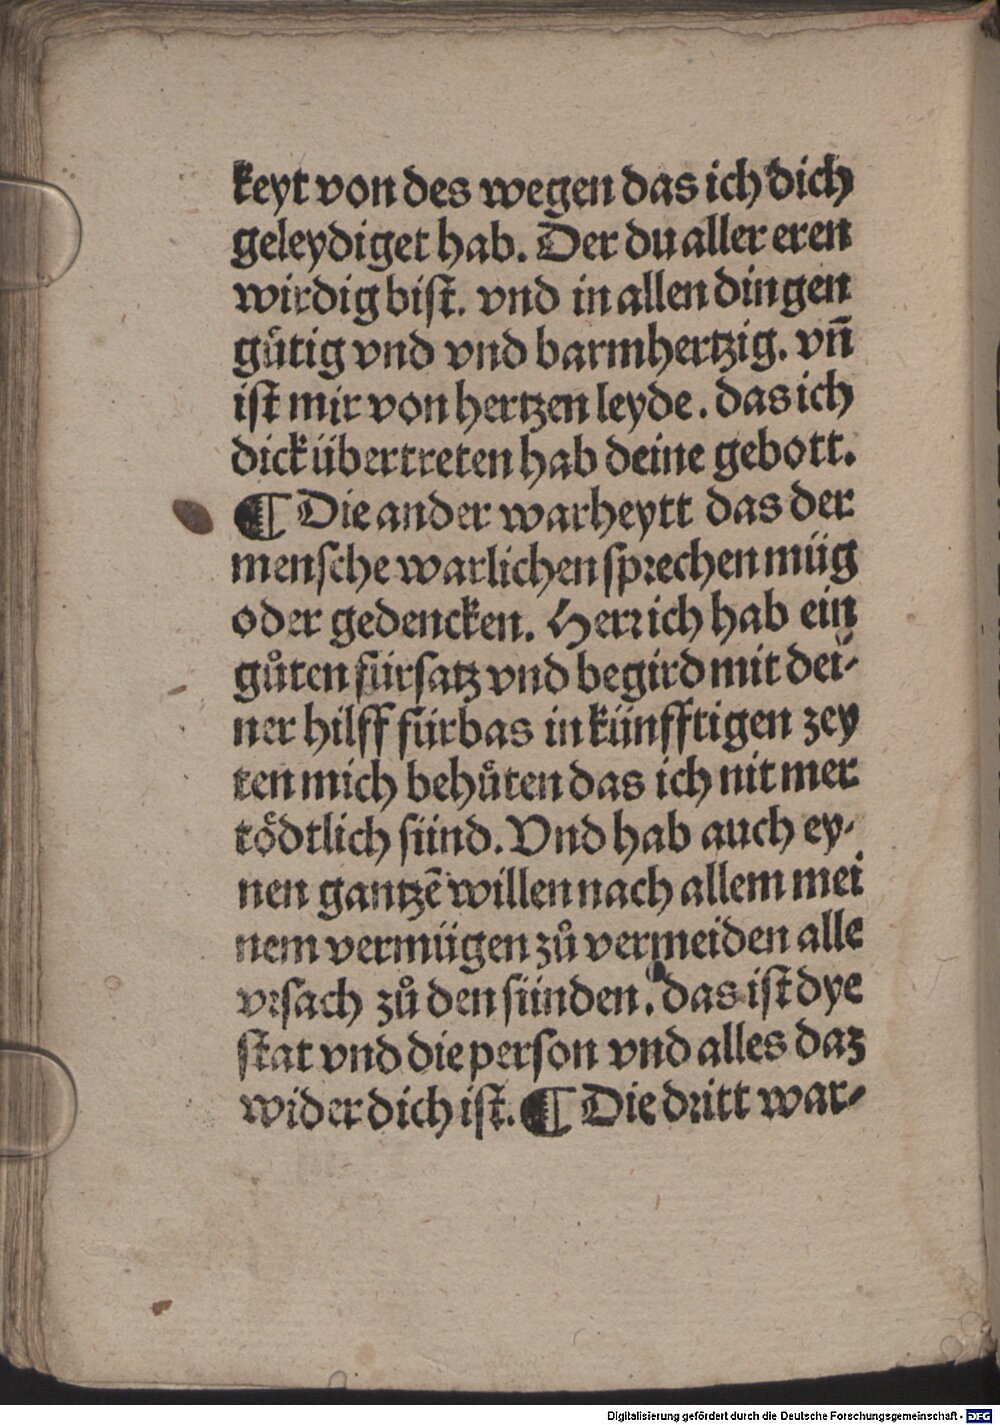 keyt von des wegen das ich dich
geleydiget hab. Der du aller eren
wirdig bist. vnd in allen dingen
gůtig vnd vnd barmhertzig. vn̄
ist mir von hertzen leyde. das ich
dick übertreten hab deine gebott.
¶ Die ander warheytt das der
mensche warlichen sprechen müg
oder gedencken. Herr ich hab ein
gůten fürsatz vnd begird mit dei-
ner hilff fürbas in künfftigen zey
ten mich behůten das ich nit mer
tödtlich sünd. Vnd hab auch ey-
nen gantzē willen nach allem mei
nem vermügen zů vermeiden alle
vrsach zů den sünden. das ist dye
stat vnd die person vnd alles daz
wider dich ist. ¶ Die dritt war-
Digitalisierung gefördert durch die Deutsche Forschungsgemeinschaft - DFG